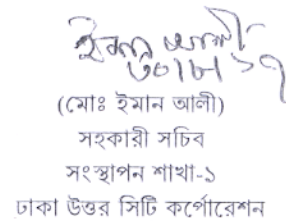 ইমান আলী
৩০।৮।১৭
(মোঃ ইমান আলী)
সহকারী সচিব
সংস্থাপন শাখা-১
ঢাকা উত্তর সিটি কর্পোরেশন